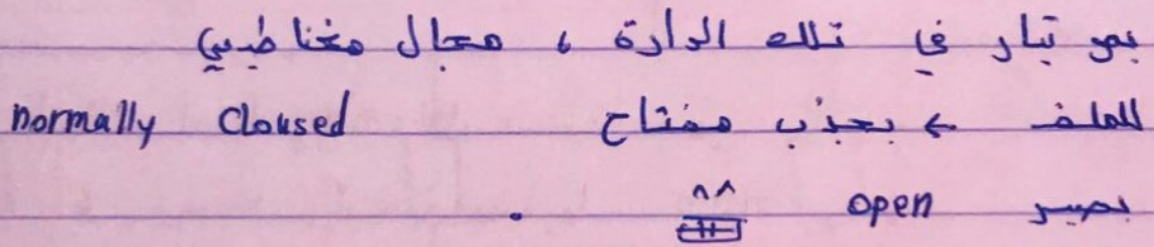 بمر تيار في تلك الدارة ، مجال مغناطيسي
للملف ← بجذب مفتاح normally Cloused
بصير open ^^ .